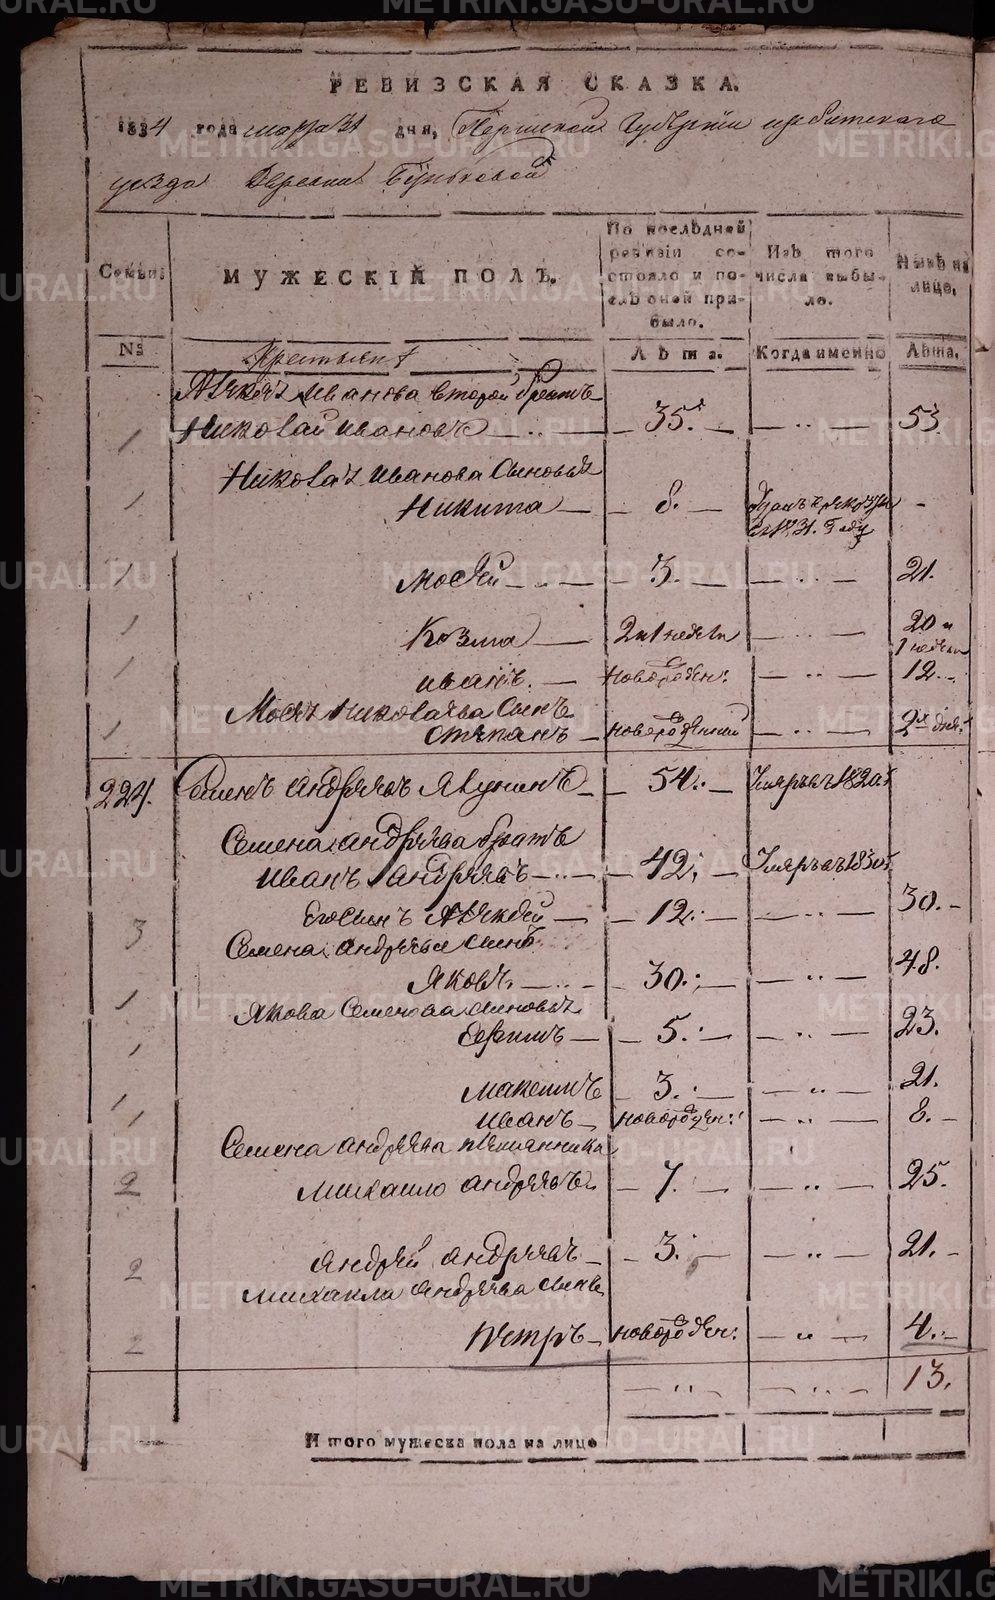 РЕВИЗСКАЯ СКАЗКА.
1834 года марта 31 дня, Пермской Губернии ирбитского
уезда Деревни Буньковой
Семьи.
МУЖЕСКІЙ ПОЛЪ.
По послѣдней ревизіи состояло и послѣ оной прибыло.
Изъ того числа выбыло.
Нынѣ на лице.
№
Крестьянѣ
Лѣта.
Когда именно
Лѣта.
Алексея Иванова второй братъ
1 Николай ивановъ 35. 53
Николая иванова Сыновья
1 Никита 8. 31. Году
1 мосей 3. 21.
1 Козма 2 и 1 недели 20 и 1 недели
1 иванъ новорожден: 12
Мосея Николаева Сынъ
1 степанъ новорожденный 2х дня
224. Семенъ андреевъ Якунинъ 54. Умеръ въ 1820
Семена андреева братъ
иванъ андреевъ 42 Умеръ въ 1830
3 Его сынъ Алексей 12. 30.
Семена андреева сынъ
1 Яковъ 30. 48.
Якова Семенова сыновья
1 Ефимъ 5. 23.
1 Максимъ 3. 21.
1 иванъ новорожден: 8.
Семена андреева племянники
2 михаило андреевъ 7. 25.
2 андрей андреевъ 3. 21.
михаила андреева сынъ
2 петръ новорожден: 4.
13.
Итого мужеска пола на лице
METRIKI.GASO-URAL.RU